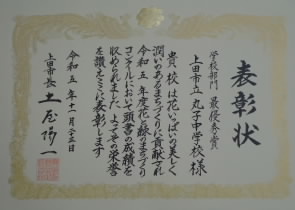 表彰状
学校部門 最優秀賞
上田市立 丸子中学校 様
貴校は花いっぱいの美しく
潤いのあるまちづくりに貢献され
令和五年度花と緑のまちづくり
コンクールにおいて頭書の成績を
収められました よってその栄誉
を讃えここに表彰します
令和五年十一月二十三日
上田市長 土屋陽一